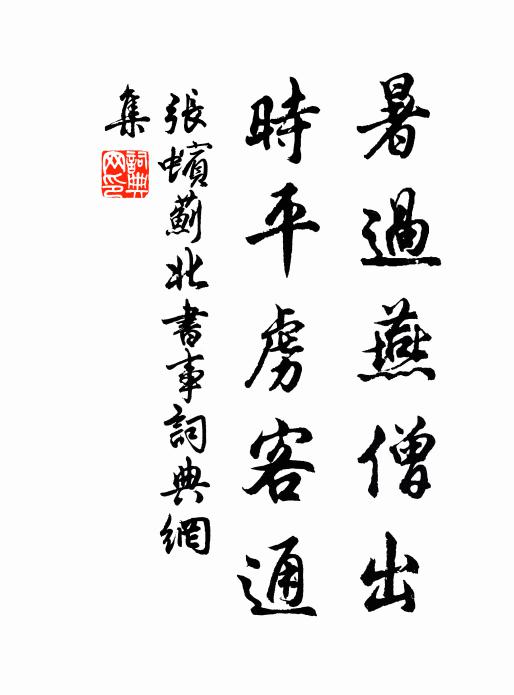 暑過燕僧出
時平虜客通
張蠙薊北書事詞典網
集
詞典網印